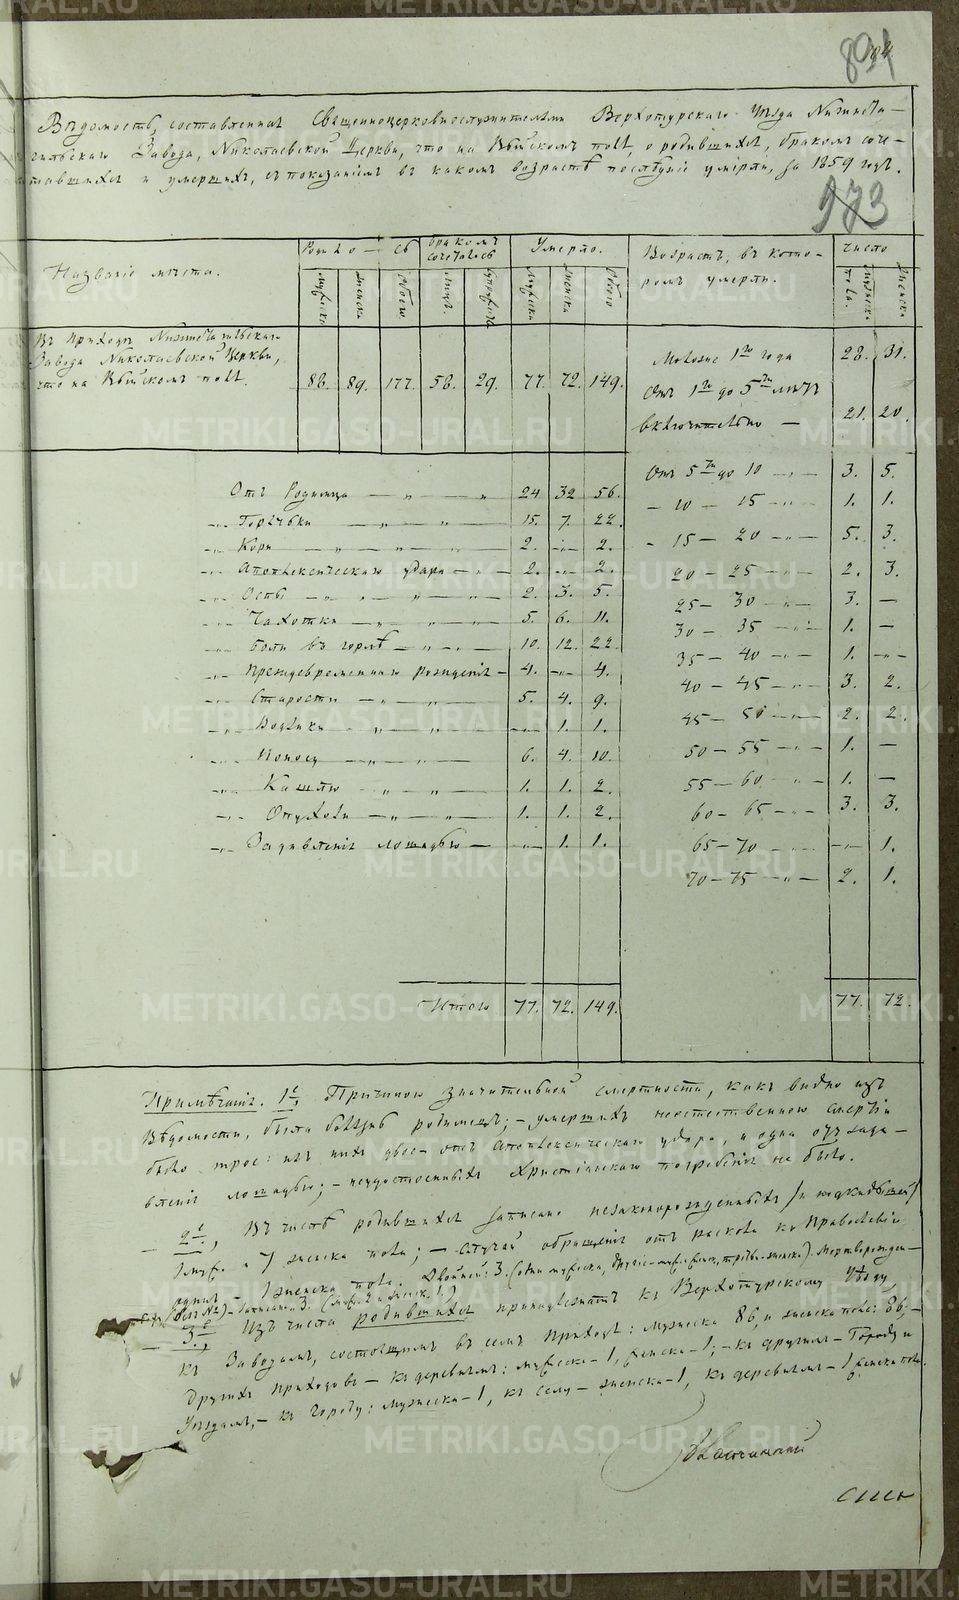 894
Вѣдомость, составленная Священноцерковнослужителями Верхотурскаго Уѣзда Нижнета-
гильскаго Завода, Николаевской Церкви, что на Выйскомъ полѣ, о родившихся, бракомъ соче-
тавшихся и умершихъ, съ показаніемъ въ какомъ возрастѣ послѣдніе умерли, за 1859 годъ.
973
Названіе мѣста. Родило — сь бракомъ сочеталось Умерло. Возрастъ, въ кото-
ромъ умерли. число
Мужеска Женска обоего Лицъ. супружествъ Мужеска Женска обоего пола. мужеска Женска
Въ приходѣ Нижнетагильскаго
Завода Николаевской Церкви,
что на Выйскомъ полѣ. 88. 89. 177. 58. 29. 77. 72. 149.
Моложе 1го года 28. 31.
Отъ 1го до 5ти лѣтъ
включительно — 21. 20.
Отъ 5ти до 10 — „ — 3. 5.
— 10 — 15 — „ — 1. 1.
— 15 — 20 — „ — 5. 3.
20 — 25 — „ — 2. 3.
25 — 30 — „ — 3. —
30 — 35 — „ — 1. —
35 — 40 — „ — 1. — „ —
40 — 45 — „ — 3. 2.
45 — 50 — „ — 2. 2.
50 — 55 — „ — 1. —
55 — 60 — „ — 1. —
60 — 65 — „ — 3. 3.
65 — 70 — „ — — „ — 1.
70 — 75 — „ — 2. 1.
Отъ Родимца — „ — „ 24 32 56.
— „ — Горячки — „ — „ — 15. 7. 22.
— „ — Кори — „ — „ — „ — 2. — „ — 2.
— „ — Апоплексическаго удара — „ — 2. — „ — 2.
— „ — Оспы — „ — „ — „ — 2. 3. 5.
— „ — Чахотки — „ — „ — 5. 6. 11.
— „ — боли въ горлѣ — „ — „ — 10. 12. 22.
— „ — Преждевременнаго рожденія — 4. — „ — 4.
— „ — Старости — „ — „ — 5. 4. 9.
— „ — Водянки — „ — „ — — „ — 1. 1.
— „ — Поносу — „ — „ — 6. 4. 10.
— „ — Кашлю — „ — „ — 1. 1. 2.
— „ — Опухоли — „ — „ — 1. 1. 2.
— „ — Задавленія лошадью — — „ — 1. 1.
Итого 77. 72. 149. 77. 72.
Примѣчаніе. 1е, Причиною значительной смертности, какъ видно изъ
Вѣдомости, была болѣзнь родимецъ; — умершихъ неестественною смертію
было трое: изъ нихъ двое отъ Апоплексическаго удара, и одна отъ зада-
вленія лошадью; — неудостоенныхъ Христіанскаго погребенія не было.
— 2е, Въ числѣ родившихся записано незаконорожденныхъ
1 муж. и 7 женска пола; — Случай обращенія отъ раскола къ Православію
одинъ — 1 женска пола. Двойней: 3. Мертворожден-
Записано 3.
— 3е, Изъ числа родившихся принадлежатъ къ Верхотурскому Уѣзду
къ Заводамъ, состоящимъ въ семъ приходѣ: мужеска 86, и женска пола: 86, —
другихъ приходовъ — къ деревнямъ: мужеска — 1, женска — 1; — къ другимъ — Городу и
Уѣздамъ, — къ городу: мужеска — 1, къ селу — женска — 1, къ деревнямъ — 1 женска пола.
METRIKI.GASO-URAL.RU